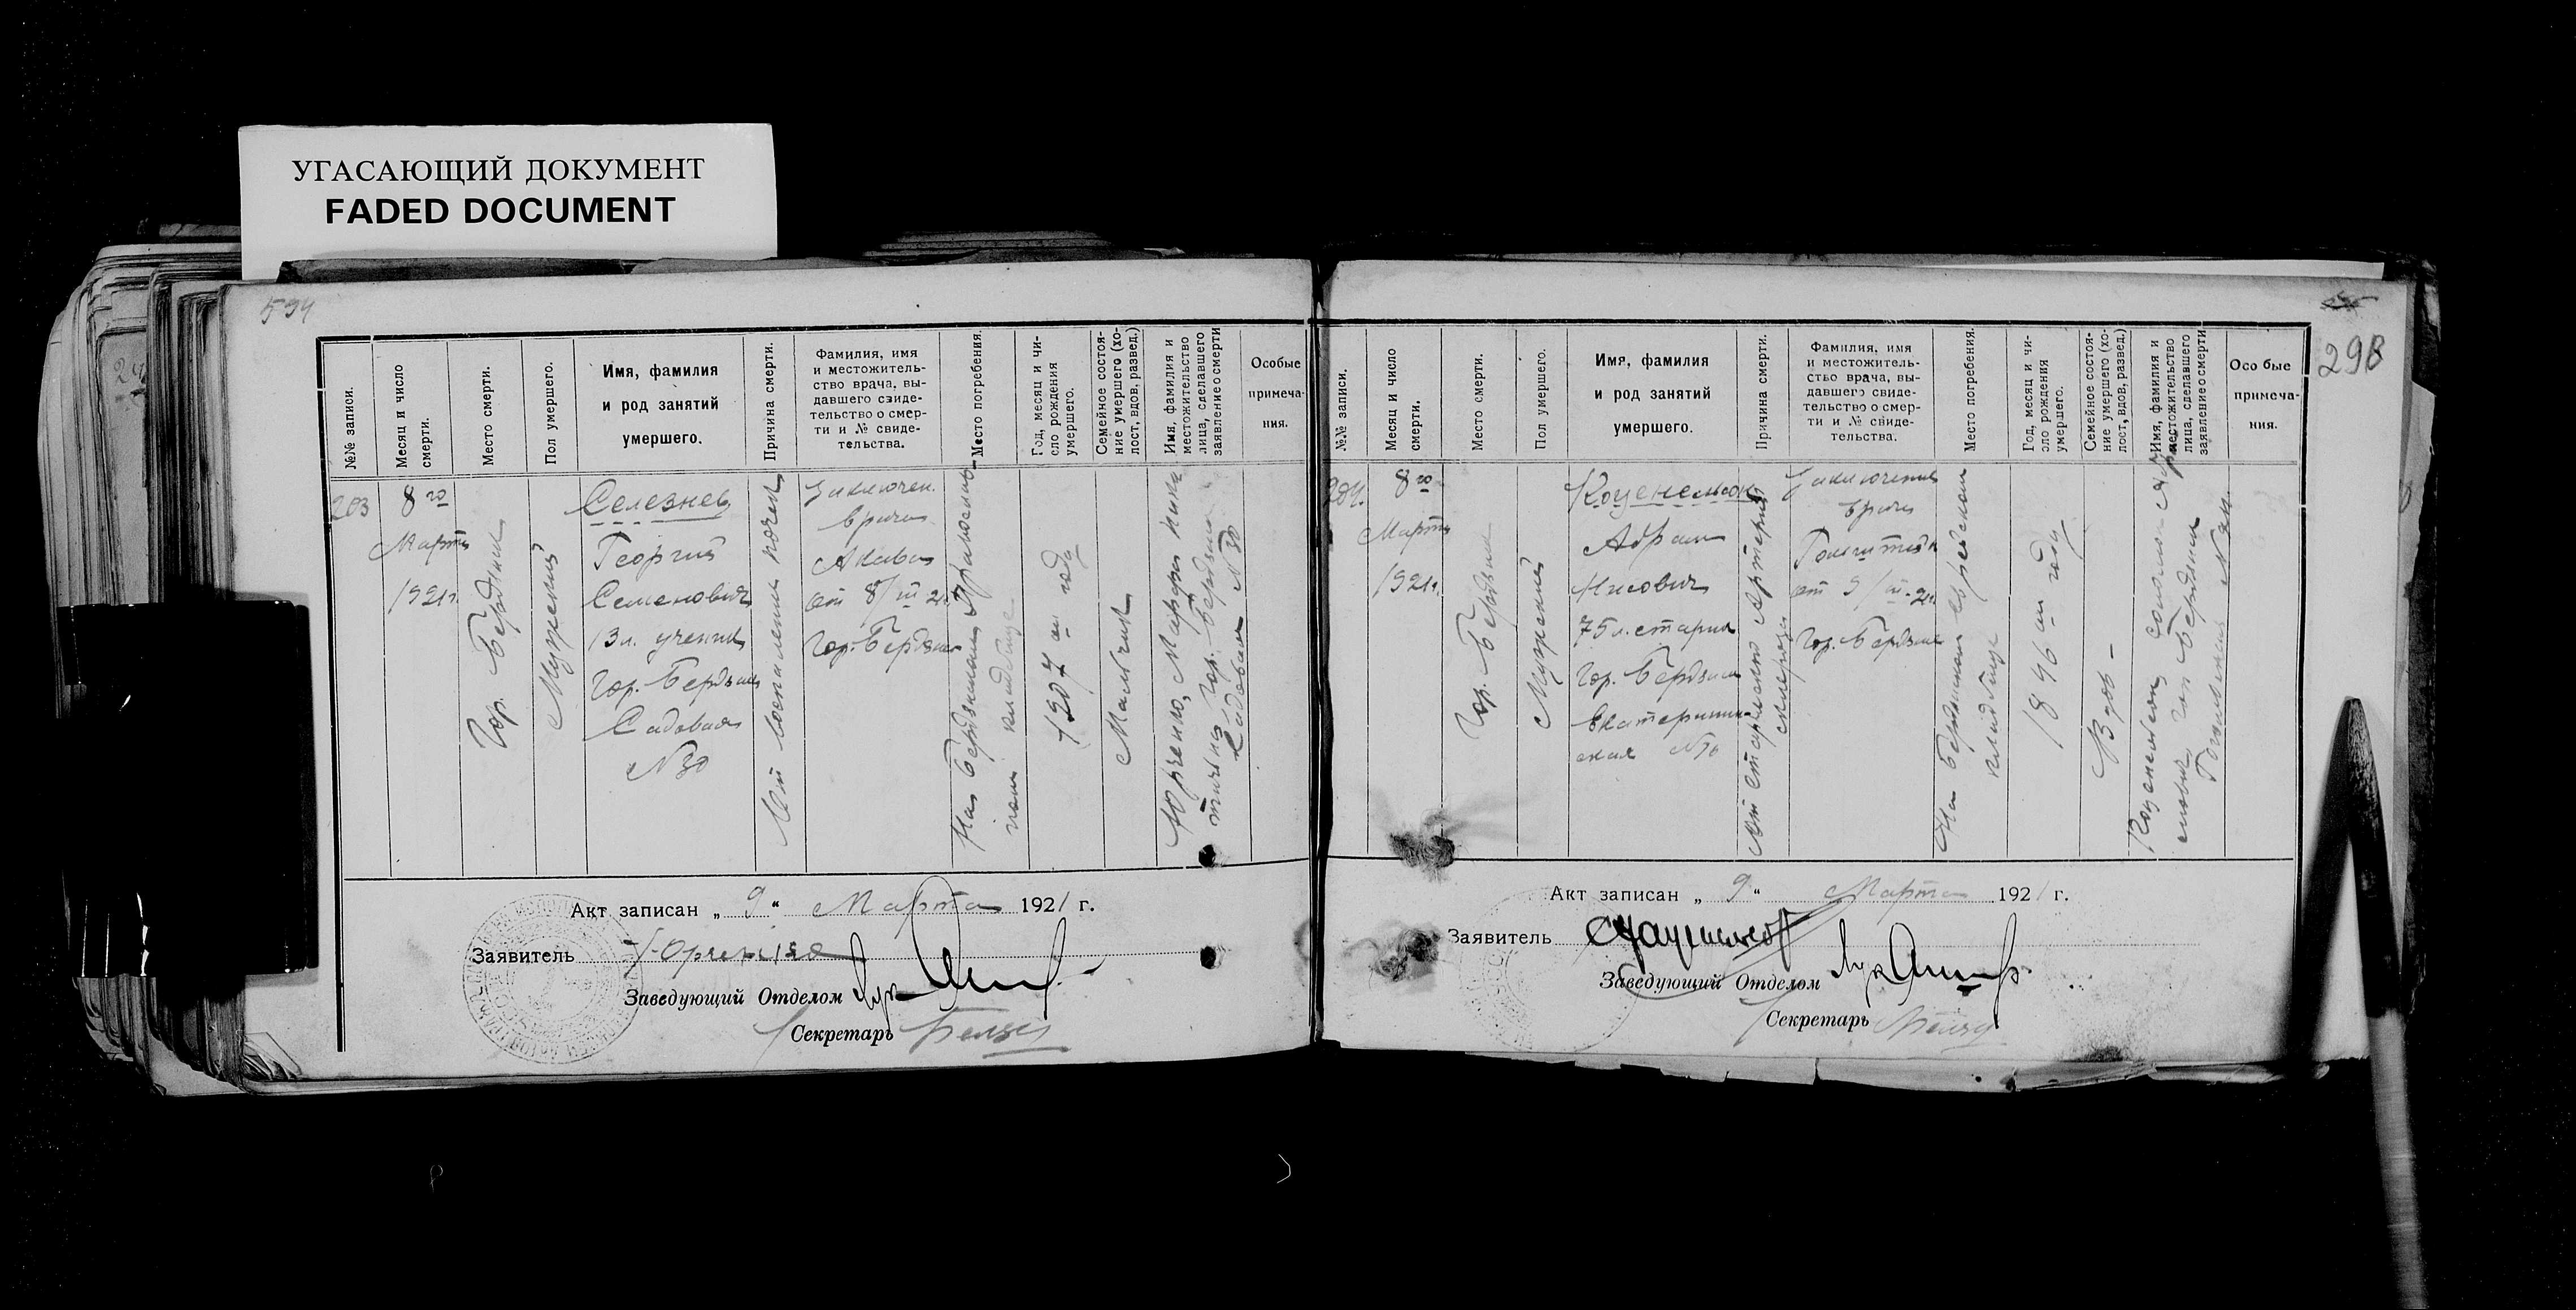 УГАСАЮЩИЙ ДОКУМЕНТ
FADED DOCUMENT
594
№№ записи.
Месяц и число
смерти.
Место смерти.
Пол умершего.
Имя, фамилия
и род занятий
умершего.
Причина смерти.
Фамилия, имя
и местожитель-
ство врача, вы-
давшего свиде-
тельство о смер-
ти и № свиде-
тельства.
Место погребения.
Год, месяц и чи-
сло рождения
умершего.
Семейное состоя-
ние умершего (хо-
лост, вдов, развед.)
Имя, фамилия и
местожительство
лица, сделавшего
заявление о смерти
Особые
примеча-
ния.
203
8го
Марта
1921г.
Гор. Бердянск
Мужеский
Селезнев
Георгий
Семенович
13 л. ученик
Гор. Бердянск
Садовая
№ 30
От воспаления почек
Заключен.
врача
от 8/III 21
Гор. Бердянск
На Бердянском
кладбище
1907 ом году
Мальчик
Юрченко, Марфа
Гор. Бердянск
Садовая № 30
Акт записан „ 9 “ Марта 1921 г.
Заявитель Юрченко
Заведующий Отделом
Секретарь
298
№№ записи.
Месяц и число
смерти.
Место смерти.
Пол умершего.
Имя, фамилия
и род занятий
умершего.
Причина смерти.
Фамилия, имя
и местожитель-
ство врача, вы-
давшего свиде-
тельство о смер-
ти и № свиде-
тельства.
Место погребения.
Год, месяц и чи-
сло рождения
умершего.
Семейное состоя-
ние умершего (хо-
лост, вдов, развед.)
Имя, фамилия и
местожительство
лица, сделавшего
заявление о смерти
Осо бые
примеча-
ния.
204.
8го
Марта
1921г.
Гор. Бердянск
Мужеский
Коценельсон
Абрам
Нисович
75 л. старик
Гор. Бердянск
Екатеринин-
ская
От старческого Артерио
склероза
Заключение
врача
от 9/III-21
Гор. Бердянск
На Бердянском еврейском
кладбище
1846 ом году
Вдов
Коценельсон
Гор. Бердянск
Акт записан „ 9 “ Марта 1921 г.
Заявитель
Заведующий Отделом
Секретарь